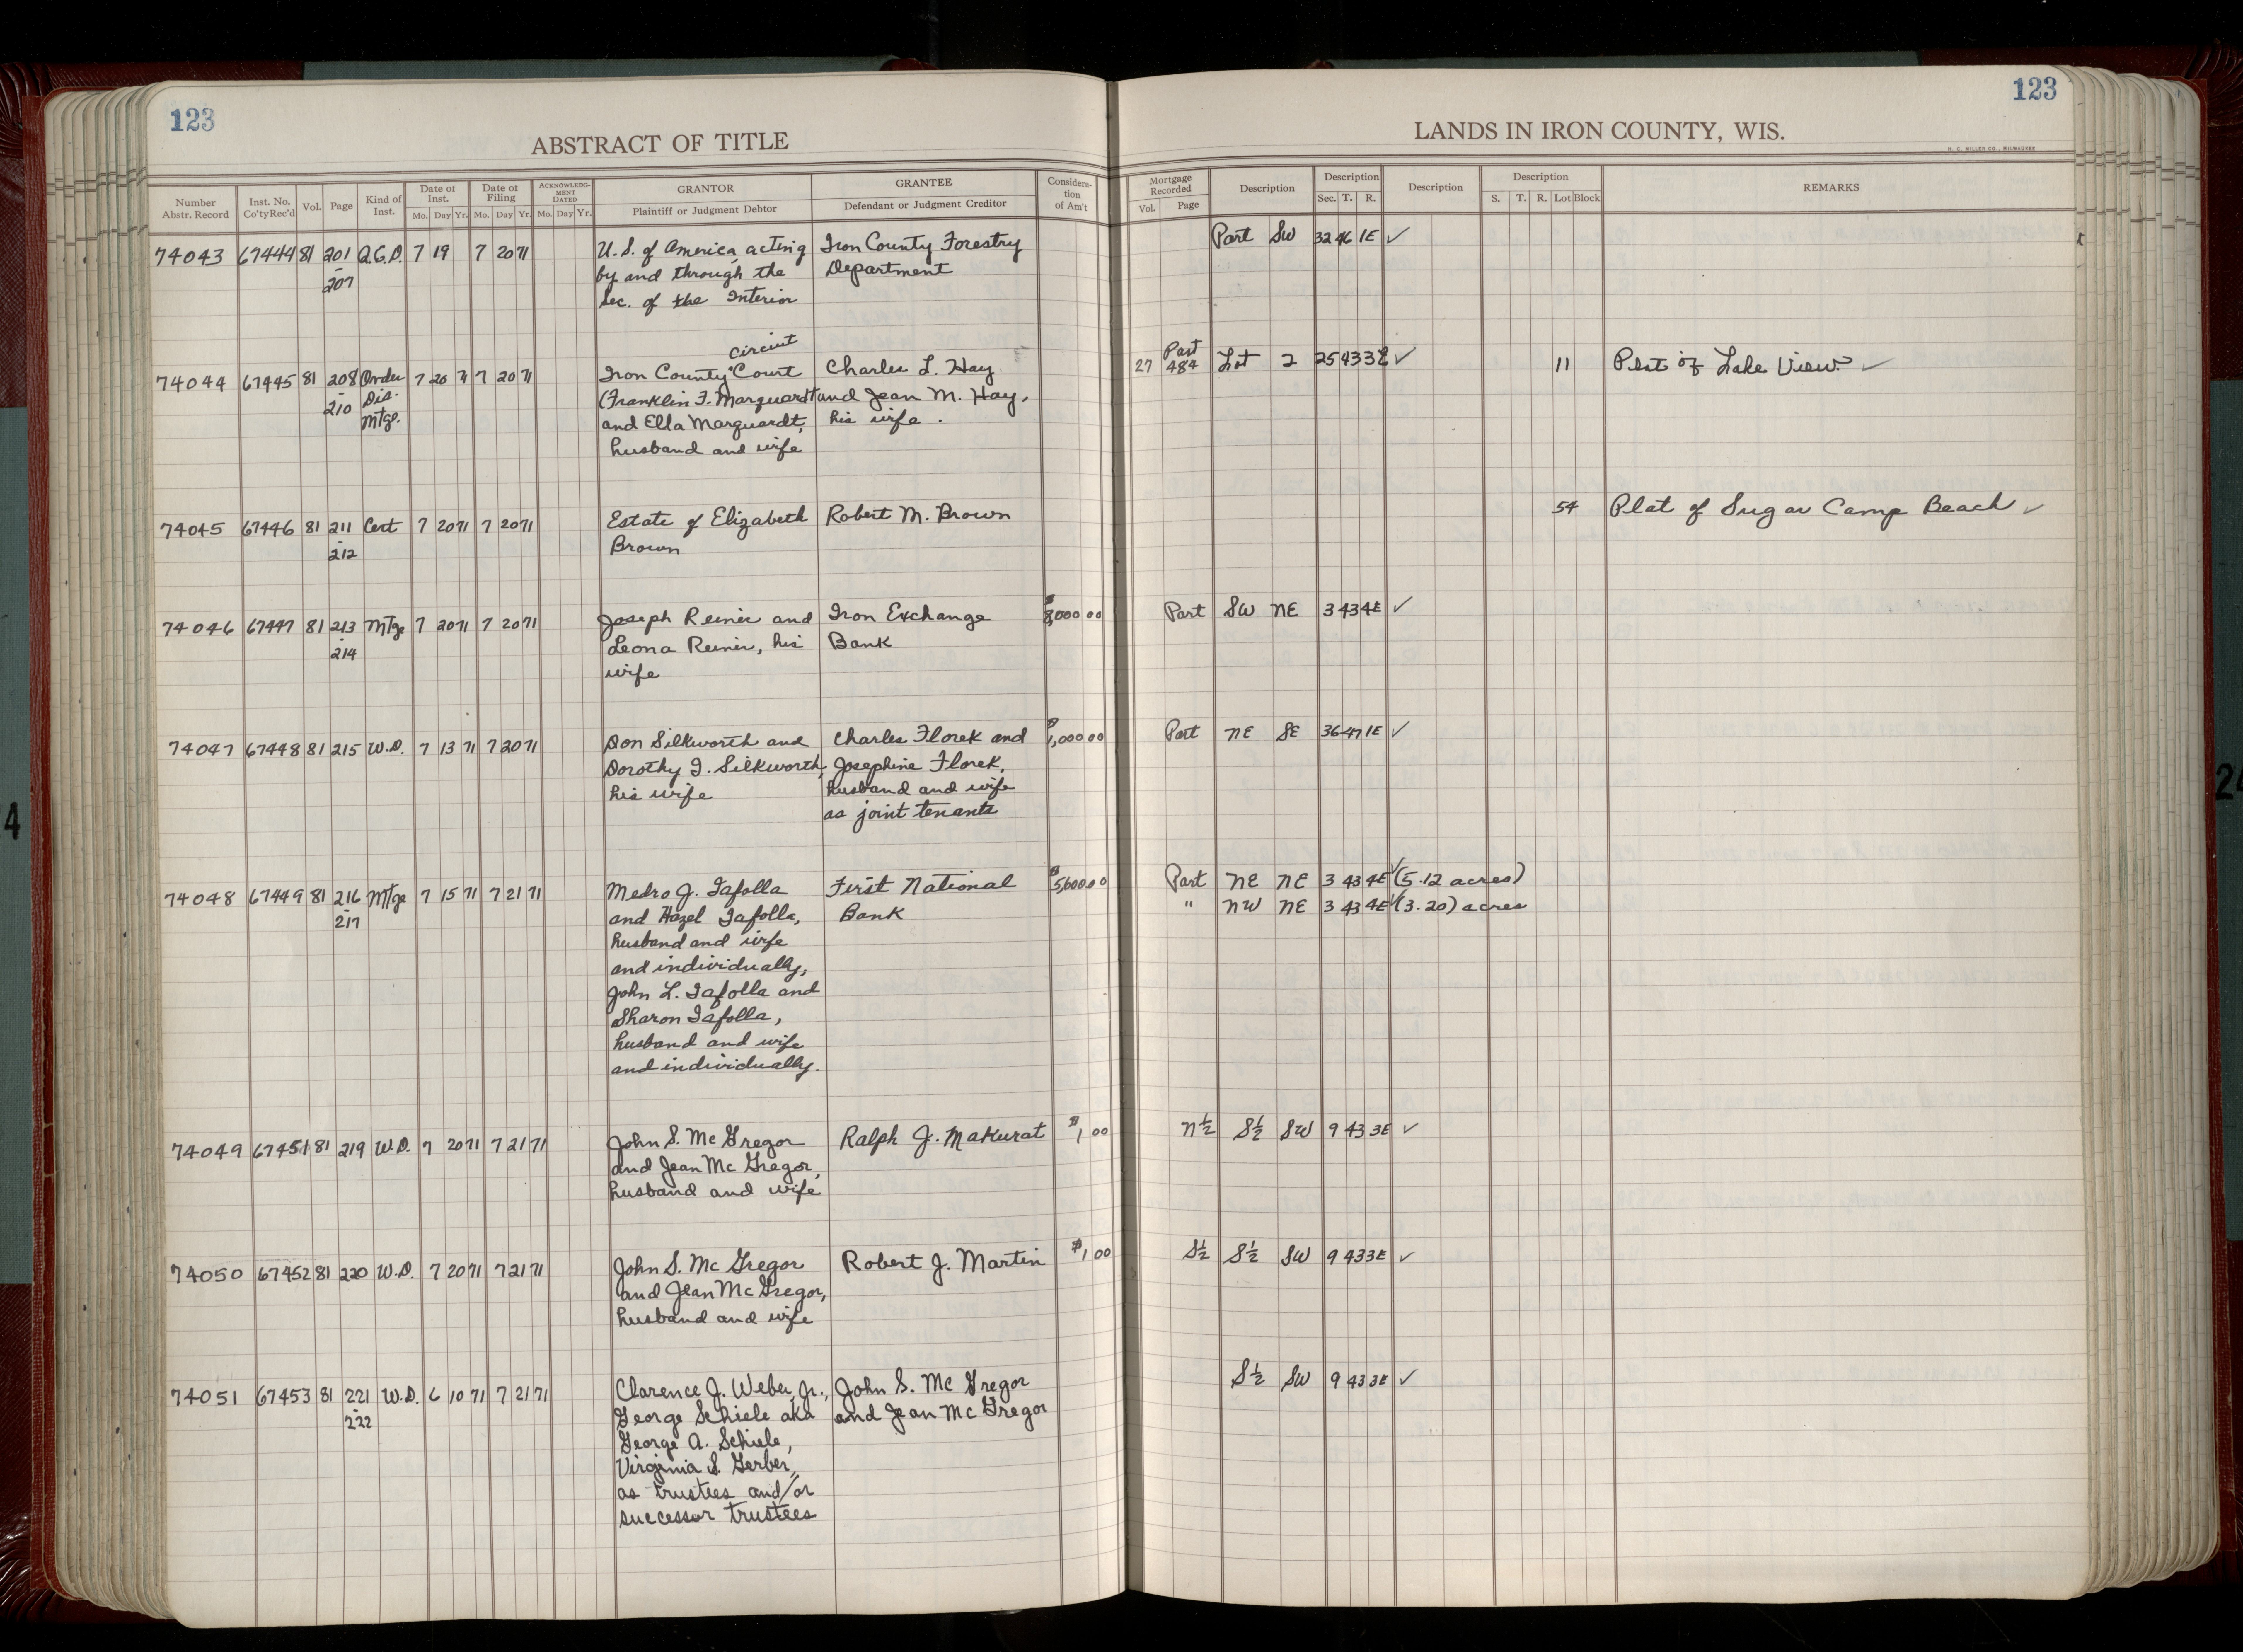 123
123
ABSTRACT OF TITLE
LANDS IN IRON COUNTY, WIS.
H. C. MILLER CO., MILWAUKEE
Number Abstr. Record Inst. No. Co'ty Rec'd Vol. Page Kind of Inst. Date of Inst. Mo. Day Yr. Date of Filing Mo. Day Yr. ACKNOWLEDGMENT DATED Mo. Day Yr. GRANTOR Plaintiff or Judgment Debtor GRANTEE Defendant or Judgment Creditor Consideration of Am't
Mortgage Recorded Vol. Page Description Description Sec. T. R. Description Description S. T. R. Lot Block REMARKS
74043 67444 81 201 Q.C.D. 7 19 7 20 71 U.S. of America, acting Iron County Forestry Part SW 32 46 1E ✓
- by and through the Department
207 Sec. of the Interior
circuit
74044 67445 81 208 Order 7 20 71 7 20 71 Iron County Court Charles L. Hay 27 Part 484 Lot 2 25 43 3E ✓ 11 Plat of Lake View ✓
- Dis. (Franklin F. Marquardt and Jean M. Hay,
210 Mtge. and Ella Marquardt, his wife.
husband and wife
74045 67446 81 211 Cert 7 20 71 7 20 71 Estate of Elizabeth Robert M. Brown 54 Plat of Sugar Camp Beach ✓
- Brown
212
74046 67447 81 213 Mtge 7 20 71 7 20 71 Joseph Reinier and Iron Exchange $8,000 00 Part SW NE 3 43 4E ✓
- Leona Reinier, his Bank
214 wife
74047 67448 81 215 W.D. 7 13 71 7 20 71 Don Silkworth and Charles Florek and $1,000 00 Part NE SE 36 47 1E ✓
Dorothy I. Silkworth, Josephine Florek,
his wife husband and wife
as joint tenants
74048 67449 81 216 Mtge 7 15 71 7 21 71 Medro J. Tafolla First National $5,600 00 Part NE NE 3 43 4E ✓ (5.12 acres)
- and Hazel Tafolla, Bank " NW NE 3 43 4E ✓ (3.20) acres
217 husband and wife
and individually,
John L. Tafolla and
Sharon Tafolla,
husband and wife
and individually.
74049 67451 81 219 W.D. 7 20 71 7 21 71 John S. McGregor Ralph J. Makurat $1 00 N½ S½ SW 9 43 3E ✓
and Jean McGregor,
husband and wife
74050 67452 81 220 W.D. 7 20 71 7 21 71 John S. McGregor Robert J. Martin $1 00 S½ S½ SW 9 43 3E ✓
and Jean McGregor,
husband and wife
74051 67453 81 221 W.D. 6 10 71 7 21 71 Clarence J. Weber, Jr., John S. McGregor S½ SW 9 43 3E ✓
- George Schiele aka and Jean McGregor
222 George A. Schiele,
Virginia S. Gerber,
as trustees and/or
successor trustees
4
24